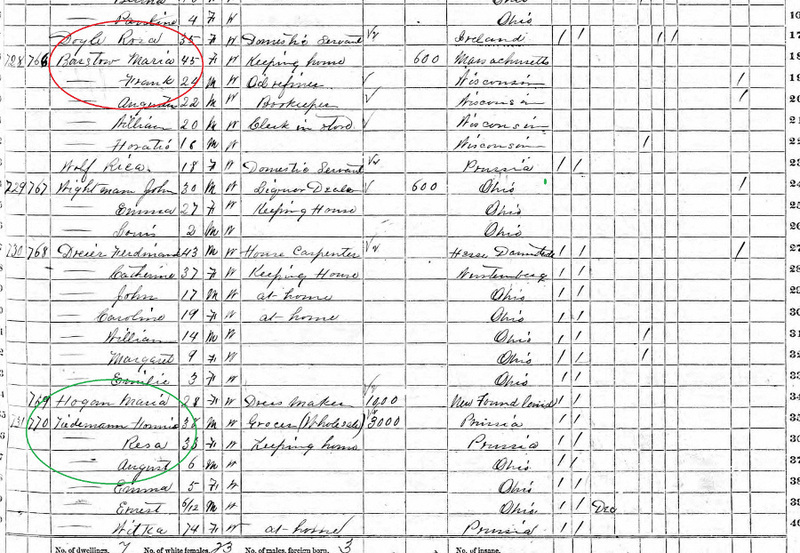 Pauline 4 F W Ohio
Doyle Rosa 35 F W Domestic Servant Ireland / / / /
728 766 Barstow Maria 45 F W Keeping home 600 Massachusetts 18
— Frank 24 M W Oil refiner Wisconsin / 19
— 22 M W Bookeeper Wisconsin / 20
— William 20 M W Clerk in Store Wisconsin 21
— Horatio 16 M W Wisconsin /
Wolf Rica 18 F W Domestic Servant Prussia / /
729 767 Wightman John 30 M W Liquor Dealer 600 Ohio /
— Emma 27 F W Keeping House Ohio
— Louis 2 M W Ohio
730 768 Dreier Ferdinand 43 M W House Carpenter Hesse Darmstadt / / /
— Catherine 37 F W Keeping House Wurtemberg / /
— John 17 M W at home Ohio / /
— Caroline 19 F W at home Ohio / /
— William 14 M W Ohio / / /
— Margaret 9 F W Ohio / / /
— Emilie 3 F W Ohio / /
769 Hogan Maria 28 F W Dress Maker 1000 New Foundland / /
731 770 Tiedemann M W Grocer (Wholesale) 3000 Prussia / /
— Resa F W Keeping home Prussia / /
— August 6 M W Ohio / /
— Emma 5 F W Ohio / /
— Ernest 6/12 M W Ohio / / Dec
— 74 F W at home Prussia / / 40
No. of dwellings, 7 No. of white females, 23 No. of males, foreign born, 3 No. of insane,